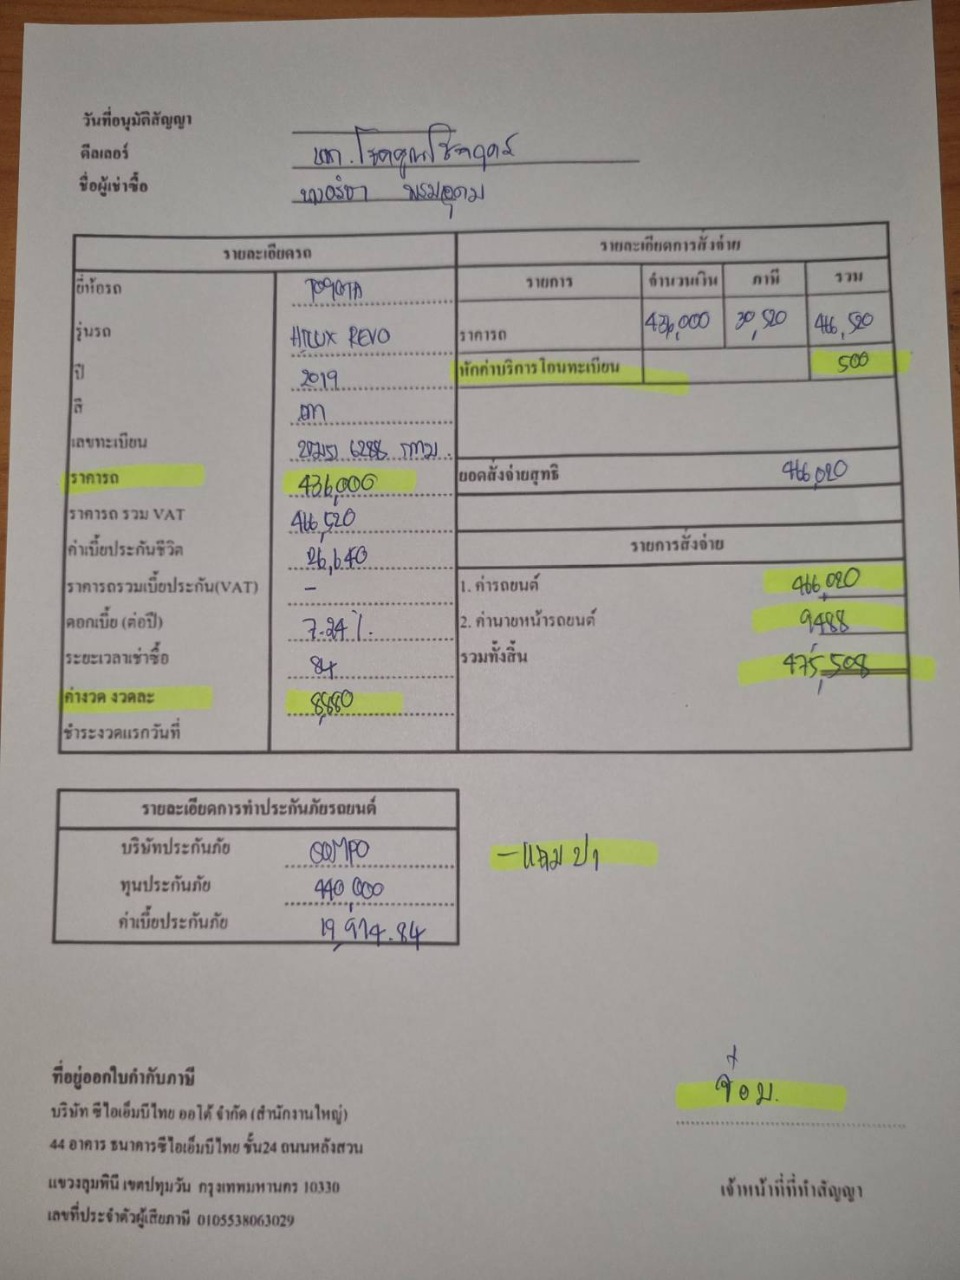 วันที่อนุมัติสัญญา
ดีลเลอร์ หจก. โชคคูณโชคฤดร์
ชื่อผู้เช่าซื้อ พรมอุดม
รายละเอียดรถ
ยี่ห้อรถ TOYOTA
รุ่นรถ HILUX REVO
ปี 2019
สี เทา
เลขทะเบียน 6288 กทม.
ราคารถ 436,000
ราคารถ รวม VAT 466,520
ค่าเบี้ยประกันชีวิต 26,640
ราคารถรวมเบี้ยประกัน(VAT) -
ดอกเบี้ย (ต่อปี) 7.24 %
ระยะเวลาเช่าซื้อ 84
ค่างวด งวดละ 8,880
ชำระงวดแรกวันที่
รายละเอียดการสั่งจ่าย
รายการ จำนวนเงิน ภาษี รวม
ราคารถ 436,000 30,520 466,520
หักค่าบริการโอนทะเบียน 500
ยอดสั่งจ่ายสุทธิ 466,020
รายการสั่งจ่าย
1. ค่ารถยนต์ 466,020
2. ค่านายหน้ารถยนต์ 9,488
รวมทั้งสิ้น 475,508
รายละเอียดการทำประกันภัยรถยนต์
บริษัทประกันภัย SOMPO
ทุนประกันภัย 440,000
ค่าเบี้ยประกันภัย 19,974.84
- แถม ปา
ที่อยู่ออกใบกำกับภาษี
บริษัท ซีไอเอ็มบีไทย ออโต้ จำกัด (สำนักงานใหญ่)
44 อาคาร ธนาคารซีไอเอ็มบีไทย ชั้น24 ถนนหลังสวน
แขวงลุมพินี เขตปทุมวัน กรุงเทพมหานคร 10330
เลขที่ประจำตัวผู้เสียภาษี 0105538063029
เจ้าหน้าที่ที่ทำสัญญา